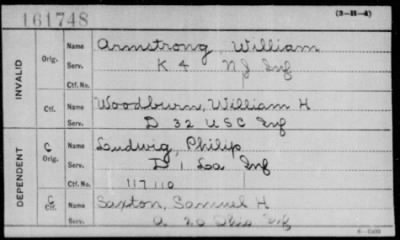 161748
(3-H-4)
INVALID
Orig.
Name Armstrong, William
Serv. K 4 NJ Inf
Ctf. No.
Ctf. Woodburn, William H
D 32 USC Inf
DEPENDENT
C Orig.
Name Ludwig, Philip
Serv. D 1 La Inf
Ctf. No. 117110
C Ctf. Saxton, Samuel H
20 Ohio Inf